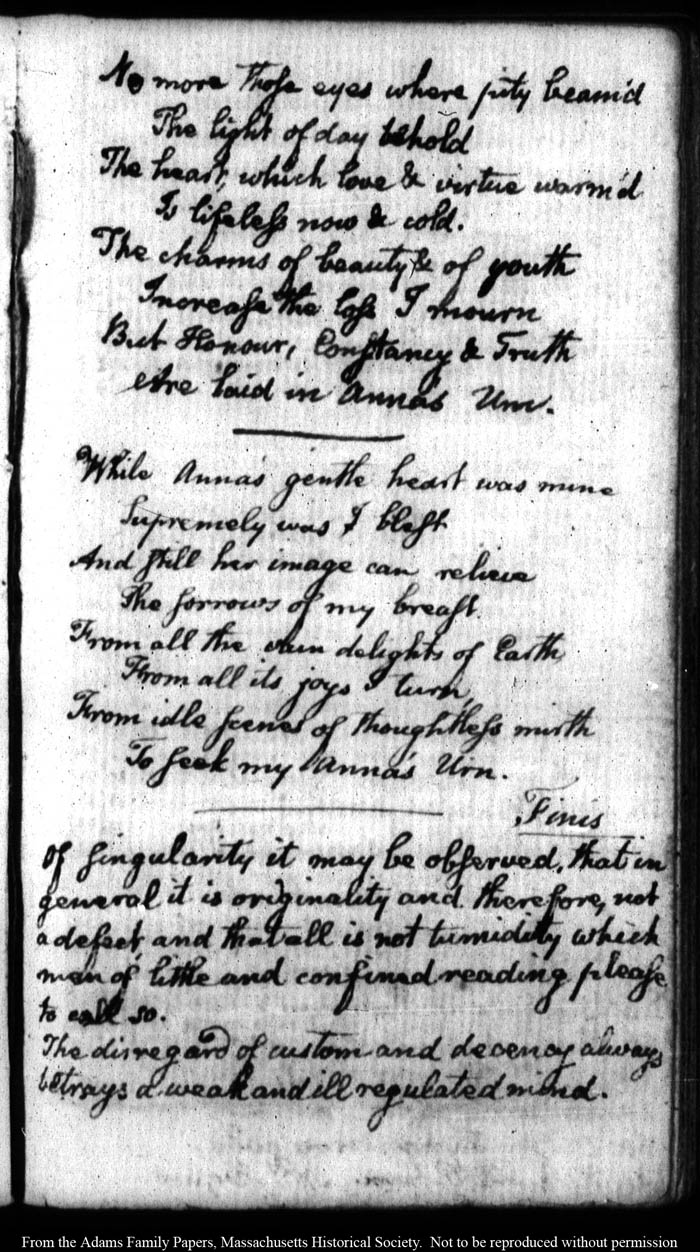 No more those eyes where pity beam'd
The light of day behold
The heart, which love & virtue warm'd
Is lifeless now & cold.
The charms of beauty & of youth
Increase the loss I mourn
But Honour, Constancy & Truth
Are laid in Anna's Urn.
While Anna's gentle heart was mine
Supremely was I blest
And still her image can relieve
The sorrows of my breast.
From all the vain delights of Earth,
From all its joys I turn,
From idle scenes of thoughtless mirth
To seek my Anna's Urn.
Finis
Of singularity it may be observed, that in
general it is originality and therefore, not
a defect, and that all is not tumidity which
men of little and confined reading please
to call so.
The disregard of custom and decency always
betrays a weak and ill regulated mind.
From the Adams Family Papers, Massachusetts Historical Society. Not to be reproduced without permission